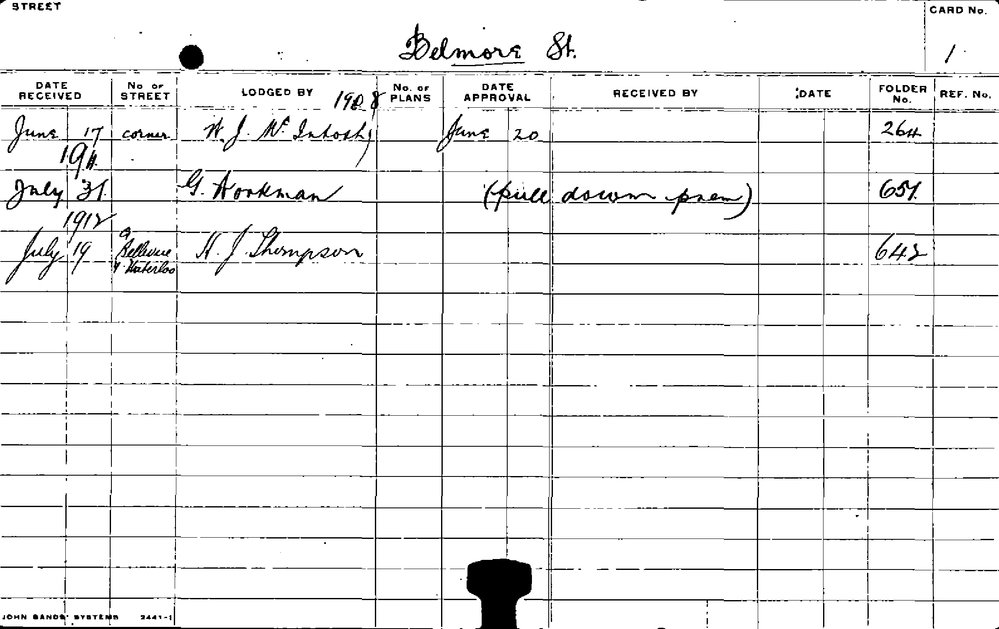 STREET
CARD No.
Belmore St.
1
DATE RECEIVED No of STREET LODGED BY No. of PLANS DATE APPROVAL RECEIVED BY DATE FOLDER No. REF. No.
1908
June 17 corner W. J. McIntosh June 20 264
1911
July 31 G. Workman (pull down prem) 651
1912
July 19 Bellevue & Waterloo H. J. Thompson 642
JOHN SANDS' SYSTEMS 2441-1